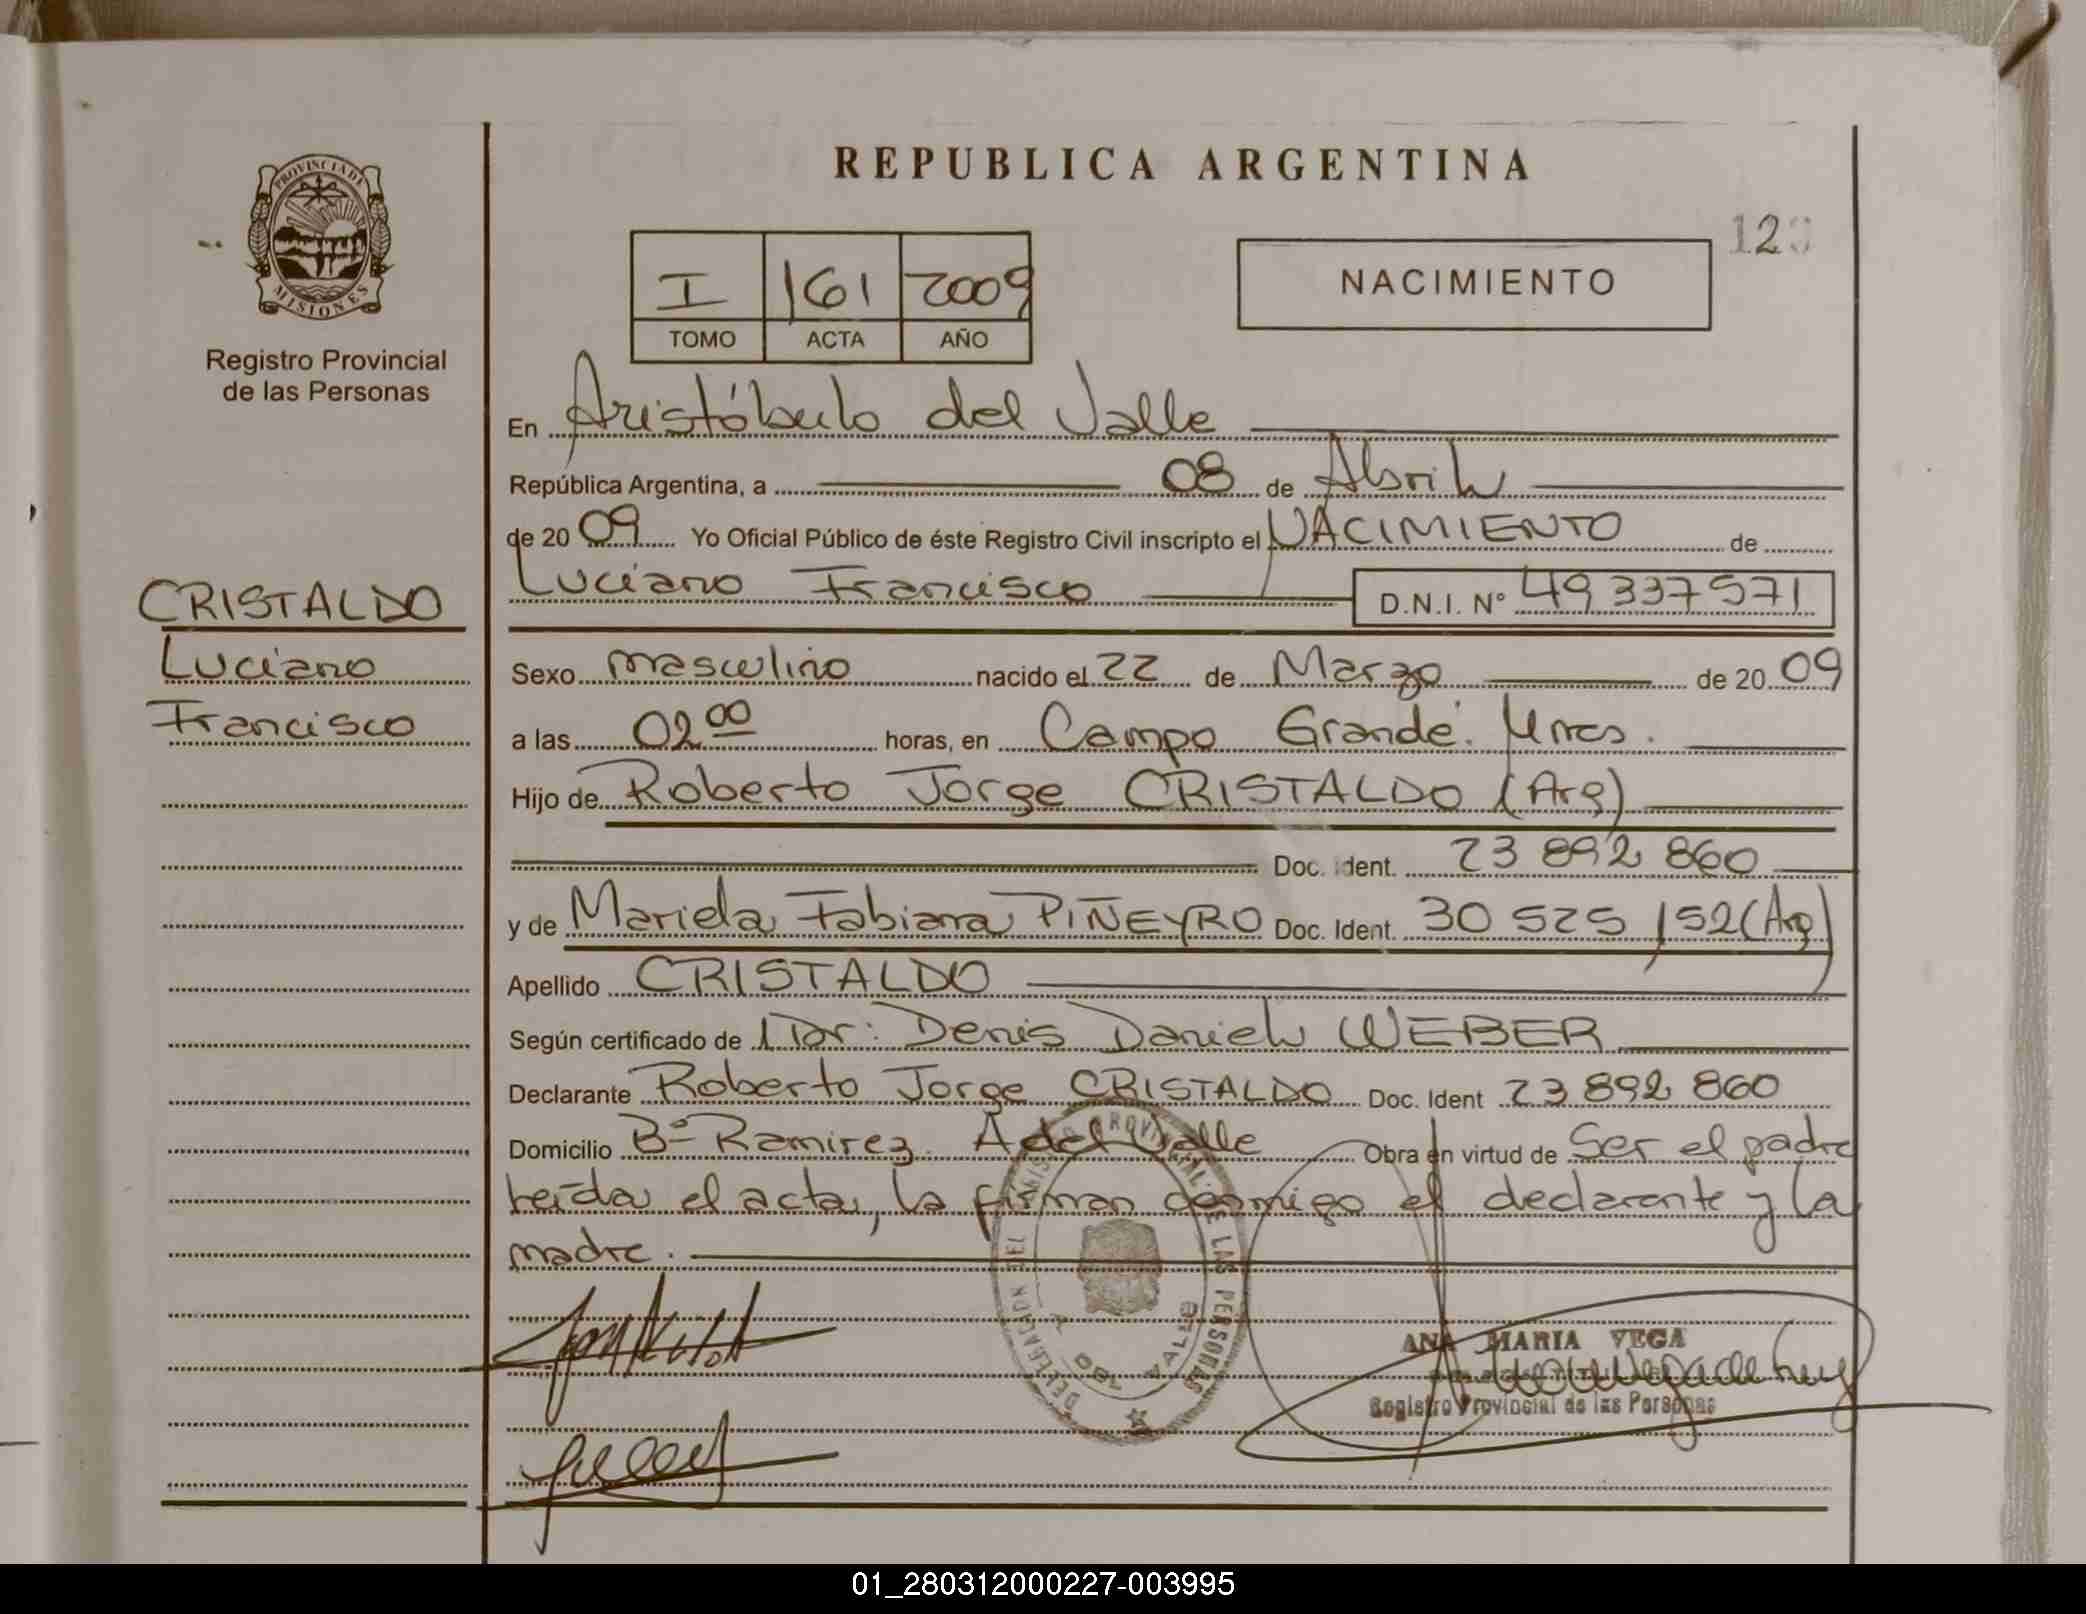 REPUBLICA ARGENTINA
PROVINCIA DE
MISIONES
Registro Provincial
de las Personas
12
I 161 2009
TOMO ACTA AÑO
NACIMIENTO
En Aristóbulo del Valle
República Argentina, a 08 de Abril
de 2009 Yo Oficial Público de éste Registro Civil inscripto el NACIMIENTO de
Luciano Francisco D.N.I. N° 49 337 571
CRISTALDO
Luciano
Francisco
Sexo masculino nacido el 22 de Marzo de 2009
a las 02 00 horas, en Campo Grande. Mnes.
Hijo de Roberto Jorge CRISTALDO (Arg)
Doc. Ident. 23 892 860
y de Mariela Fabiana PIÑEYRO Doc. Ident. 30 525 152 (Arg)
Apellido CRISTALDO
Según certificado de Dr: Denis Daniel WEBER
Declarante Roberto Jorge CRISTALDO Doc. Ident 23 892 860
Domicilio Bº Ramirez. A del Valle Obra en virtud de Ser el padre
leída el acta, la firman conmigo el declarante y la
madre.
DELEGACION DEL REGISTRO PROVINCIAL DE LAS PERSONAS
VALLE
ANA MARIA VEGA
Registro Provincial de las Personas
01_280312000227-003995